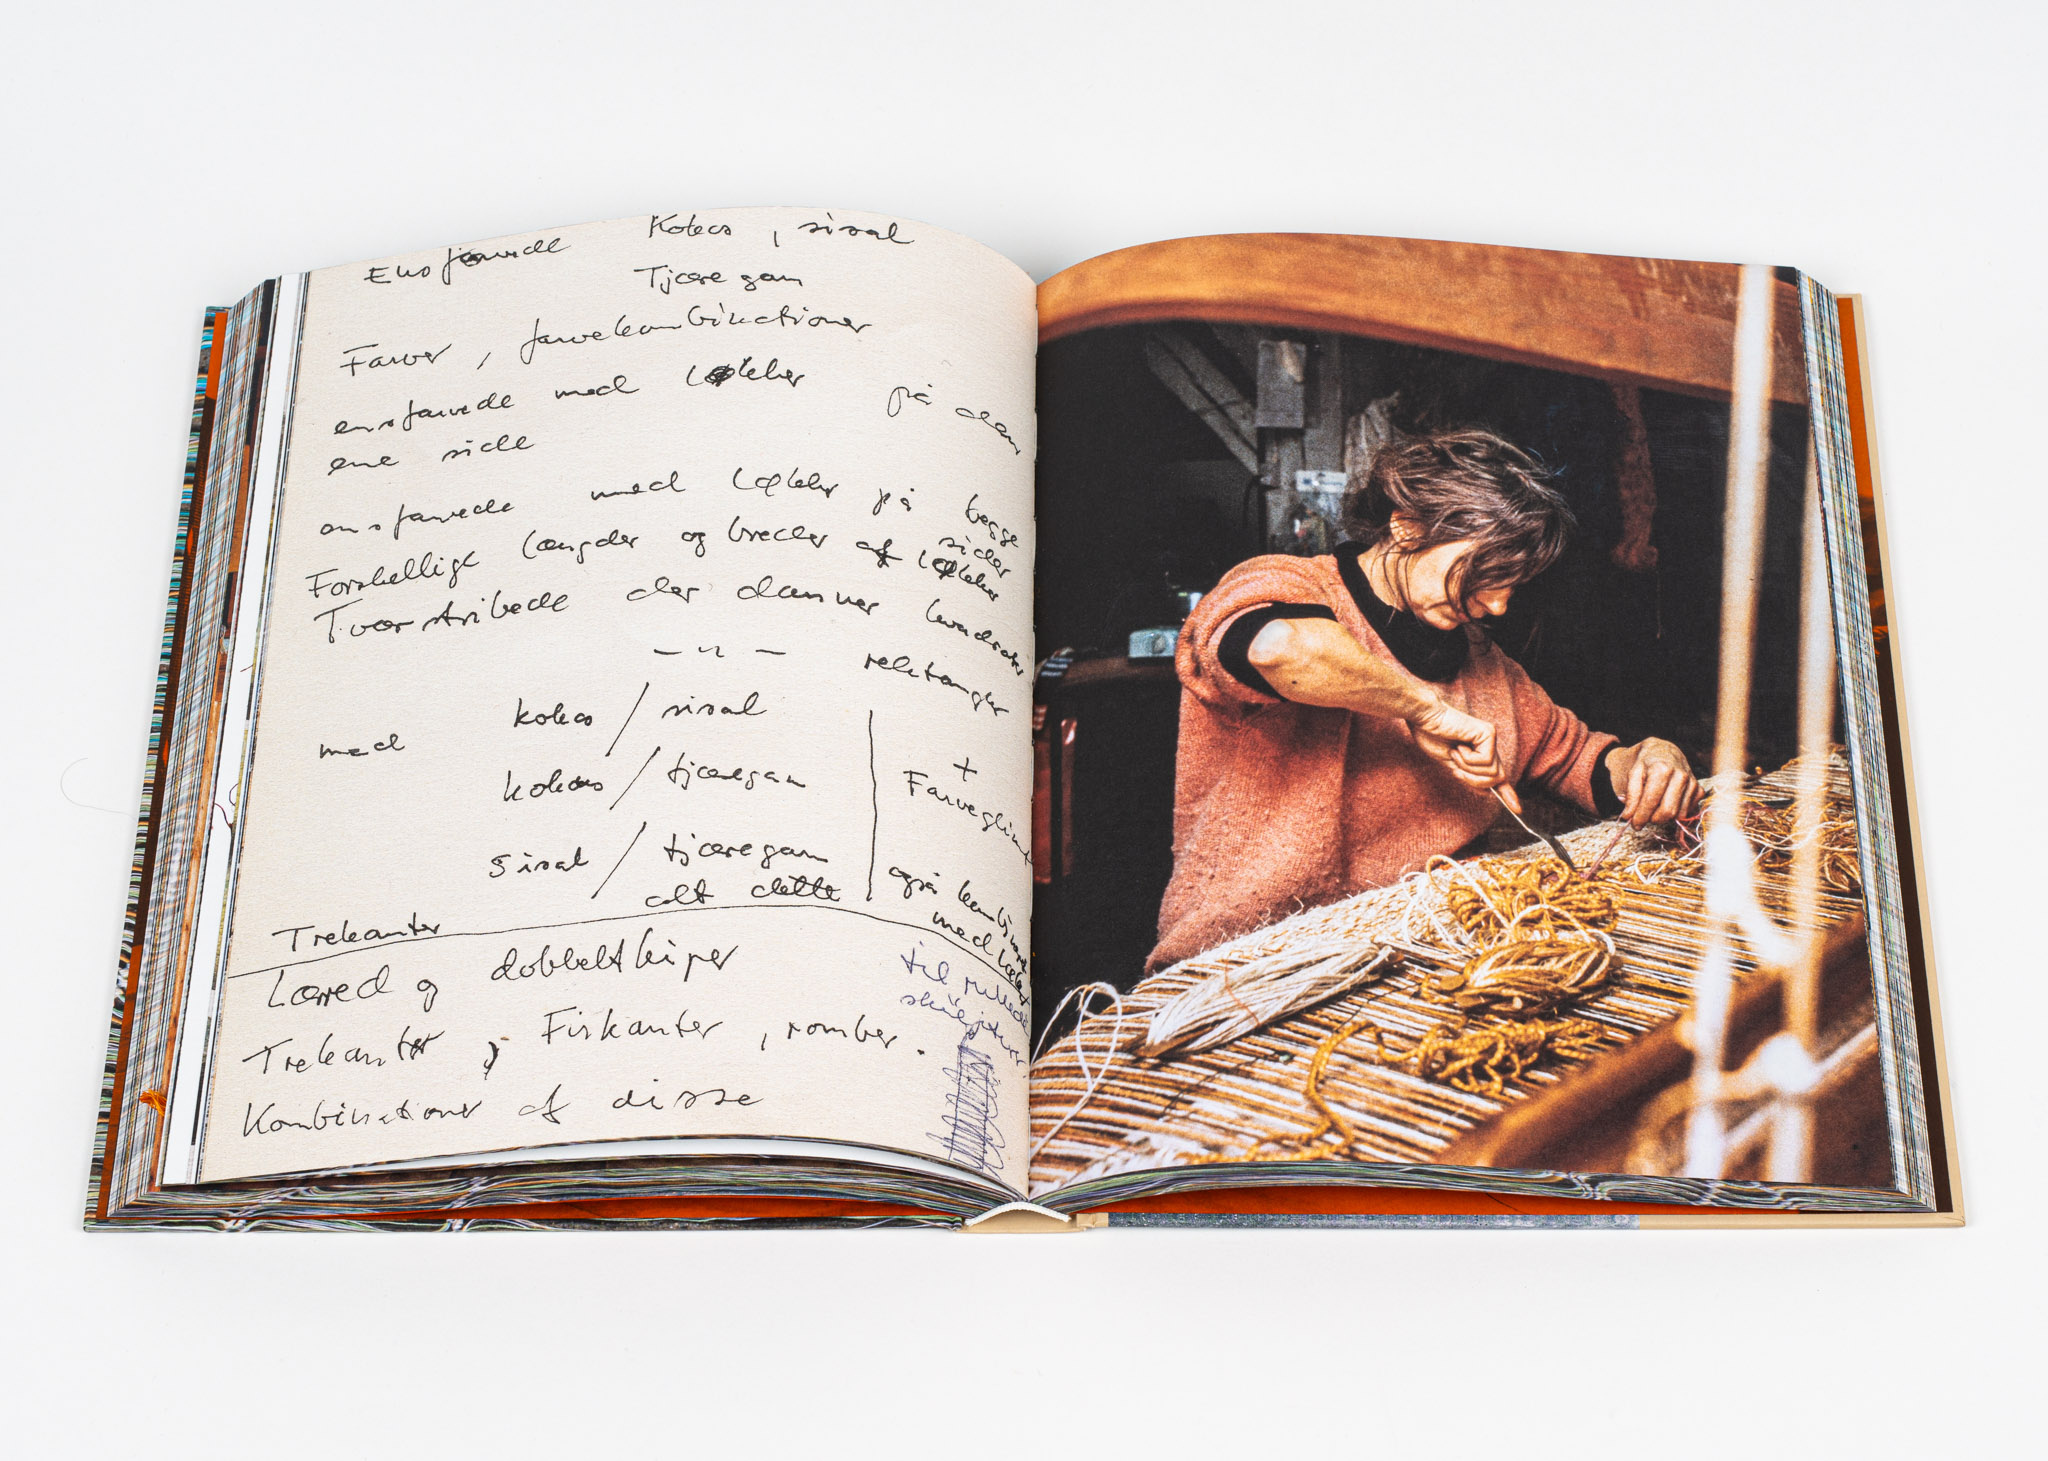 Ensfarvede Kokos, sisal
Tjæregarn
Farver, farvekombinationer
ensfarvede med løkker på den
ene side
ensfarvede med løkker på begge
sider
Forskellige længder og bredder af løkker
Tværstribede der danner kvadrater
— " — rektangler
med kokos / sisal
kokos / tjæregarn
sisal / tjæregarn
alt dette
+
Farveglimt
også kombineret
med løkker
Trekanter
Lærred og dobbeltkiper
til runde
Trekanter, Firkanter, romber.
Kombinationer af disse